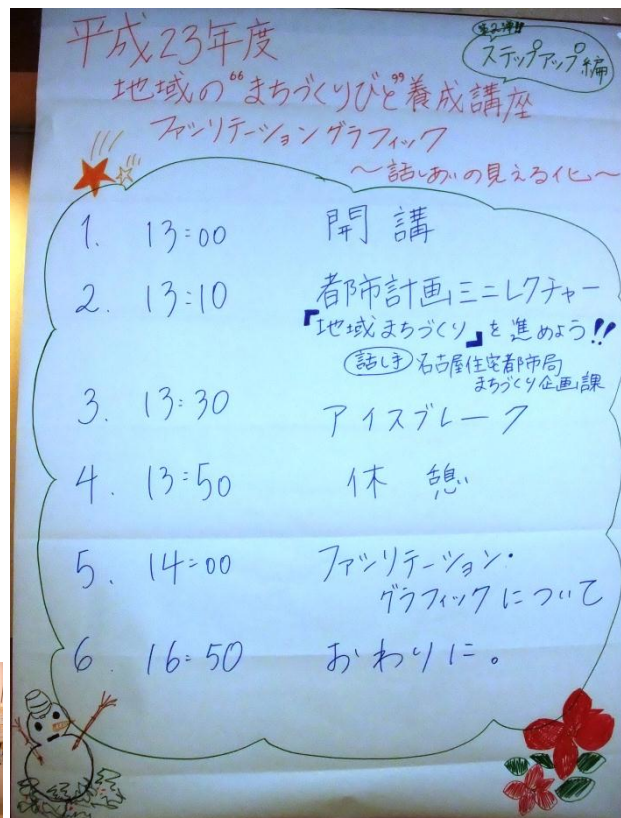 平成23年度
第2弾!!
ステップアップ編
地域の“まちづくりびと”養成講座
ファシリテーショングラフィック
～話しあいの見える化～
1. 13:00 開講
2. 13:10 都市計画ミニレクチャー
『地域まちづくり』を進めよう!!
話し手 名古屋住宅都市局
まちづくり企画課
3. 13:30 アイスブレーク
4. 13:50 休憩
5. 14:00 ファシリテーション・
グラフィックについて
6. 16:50 おわりに。